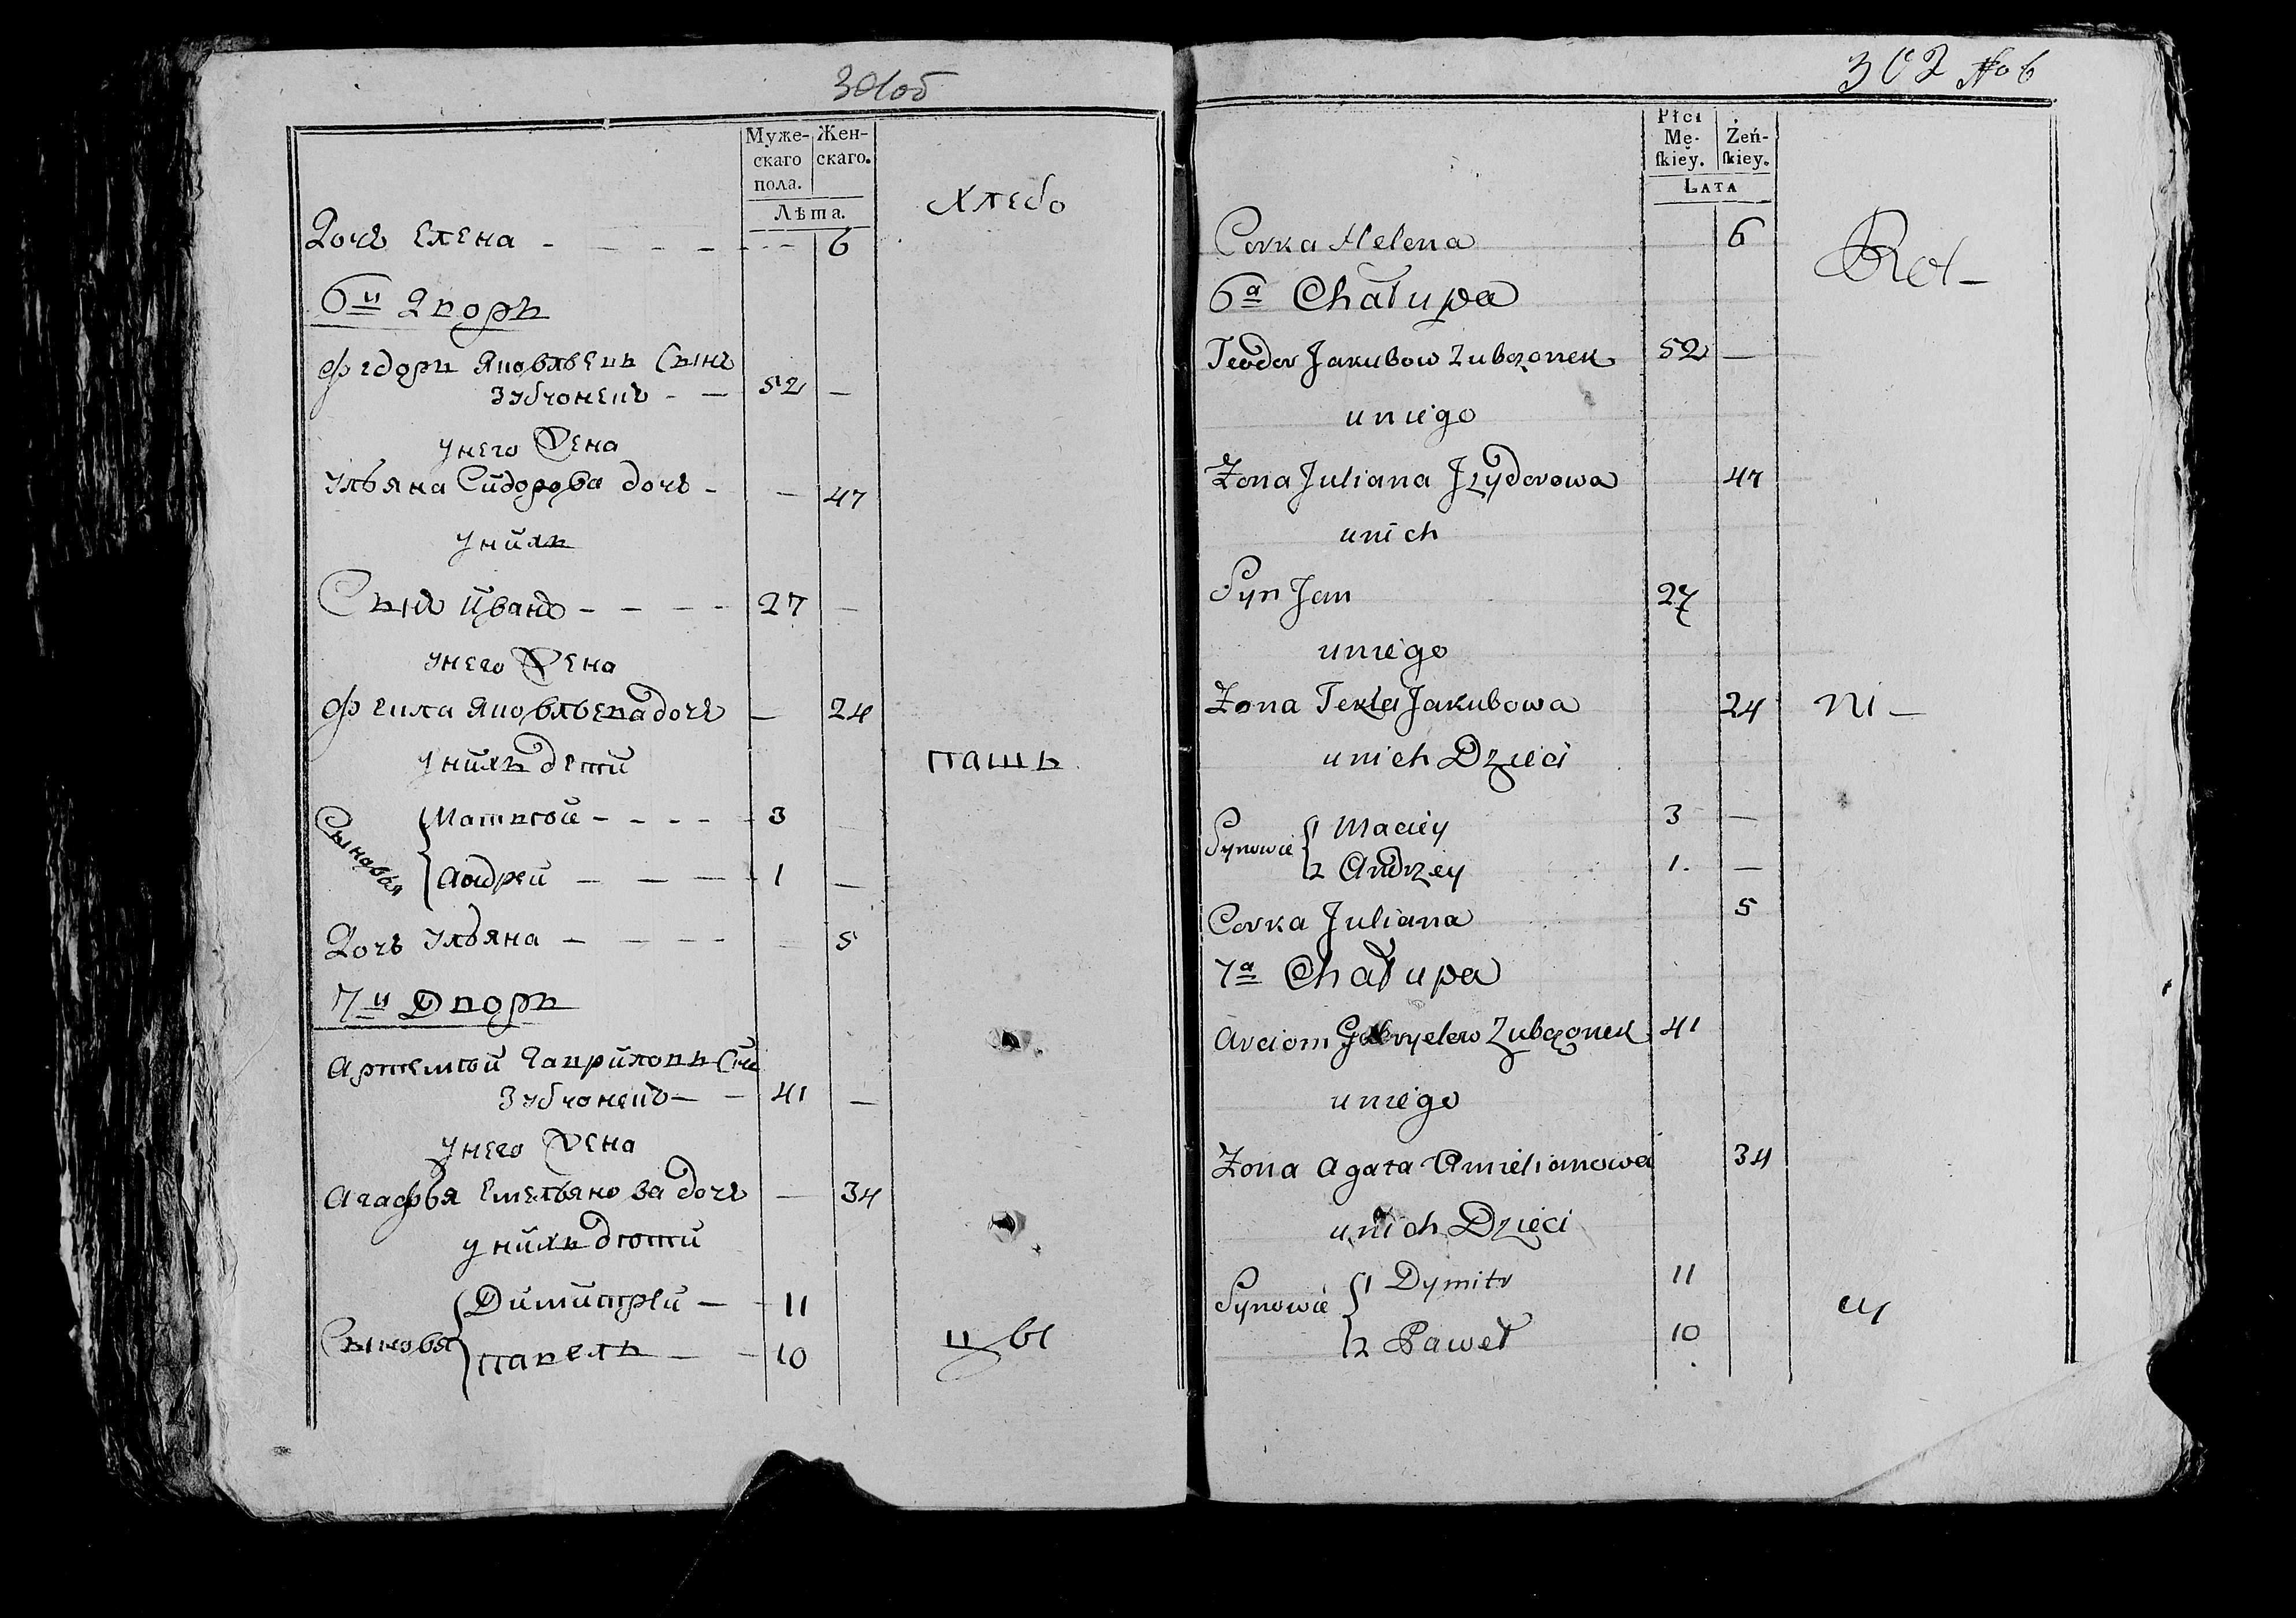 301об
Муже-
скаго
пола.
Жен-
скаго.
Лѣта.
Хлебо
Дочь Елена - - - - - 6
6й Дворъ
Федоръ Яковлевъ Сынъ
Зубчонекъ - - 52 -
У него Жена
Ульяна Сидорова дочь - - 47
У нихъ
Сынъ Иванъ - - - - 27 -
У него Жена
Фекла Яковлева дочь - 24
У нихъ дети
Сыновья
Матвей - - - - 3
Андрей - - - - 1 -
Дочь Ульяна - - - - 5
7й Дворъ
Артемий Гавриловъ Сы
Зубчонекъ - - 41 -
У него Жена
Агафья Емельянова дочь - 34
У нихъ дети
Сыновья
Димитрей - - 11
Павелъ - - 10
пашъ
цы
302 No 6
Płci
Mę-
ſkiey.
Żeń-
ſkiey.
Lata
Corka Helena 6
6a Chałupa
Teodor Jakubow Zubczonek 52 -
u niego
Żona Juliana Jzydorowa 47
u nich
Syn Jan 27
u niego
Żona Tekla Jakubowa 24
u nich Dzieci
Synowie
1 Maciey 3 -
2 Andrzey 1. -
Corka Juliana 5
7a Chałupa
Arciom Gabryelow Zubczonek 41
u niego
Żona Agata Amielianowa 34
u nich Dzieci
Synowie
1 Dymitr 11
2 Paweł 10
Rol-
ni-
cy